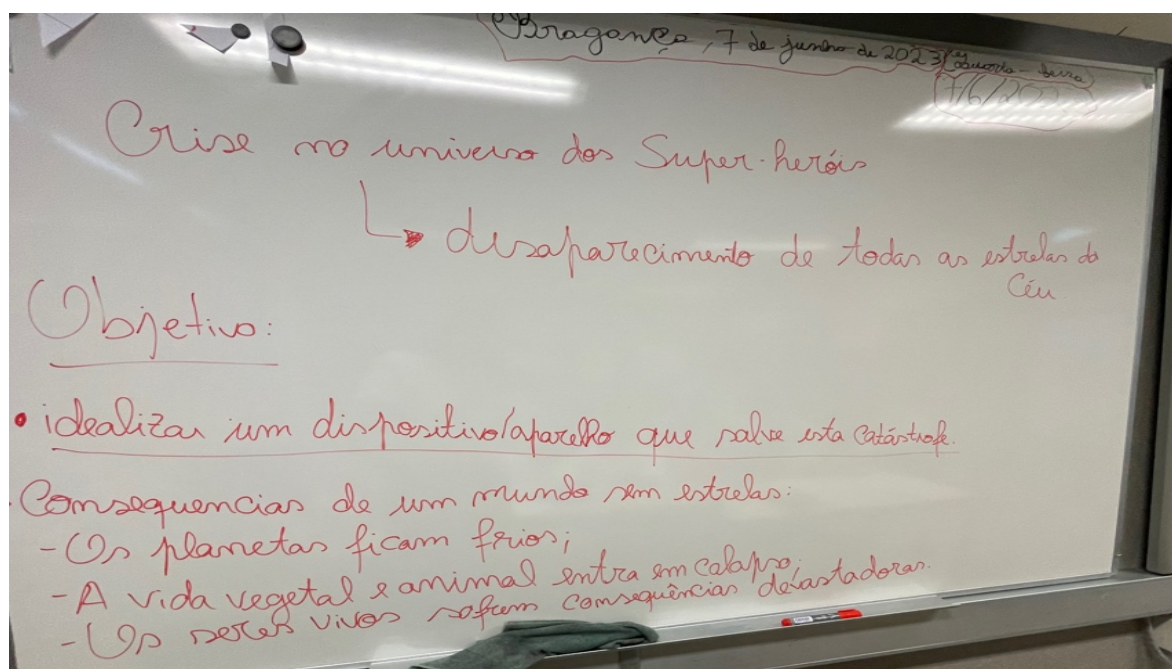 Bragança, 7 de junho de 2023 (quarta-feira)
7/6/202
Crise no universo dos Super-heróis
desaparecimento de todas as estrelas do
Céu
Objetivo:
• idealizar um dispositivo/aparelho que salve esta catástrofe.
Consequencias de um mundo sem estrelas:
- Os planetas ficam frios;
- A vida vegetal e animal entra em calapso;
- Os seres vivos sofrem consequências devastadoras.